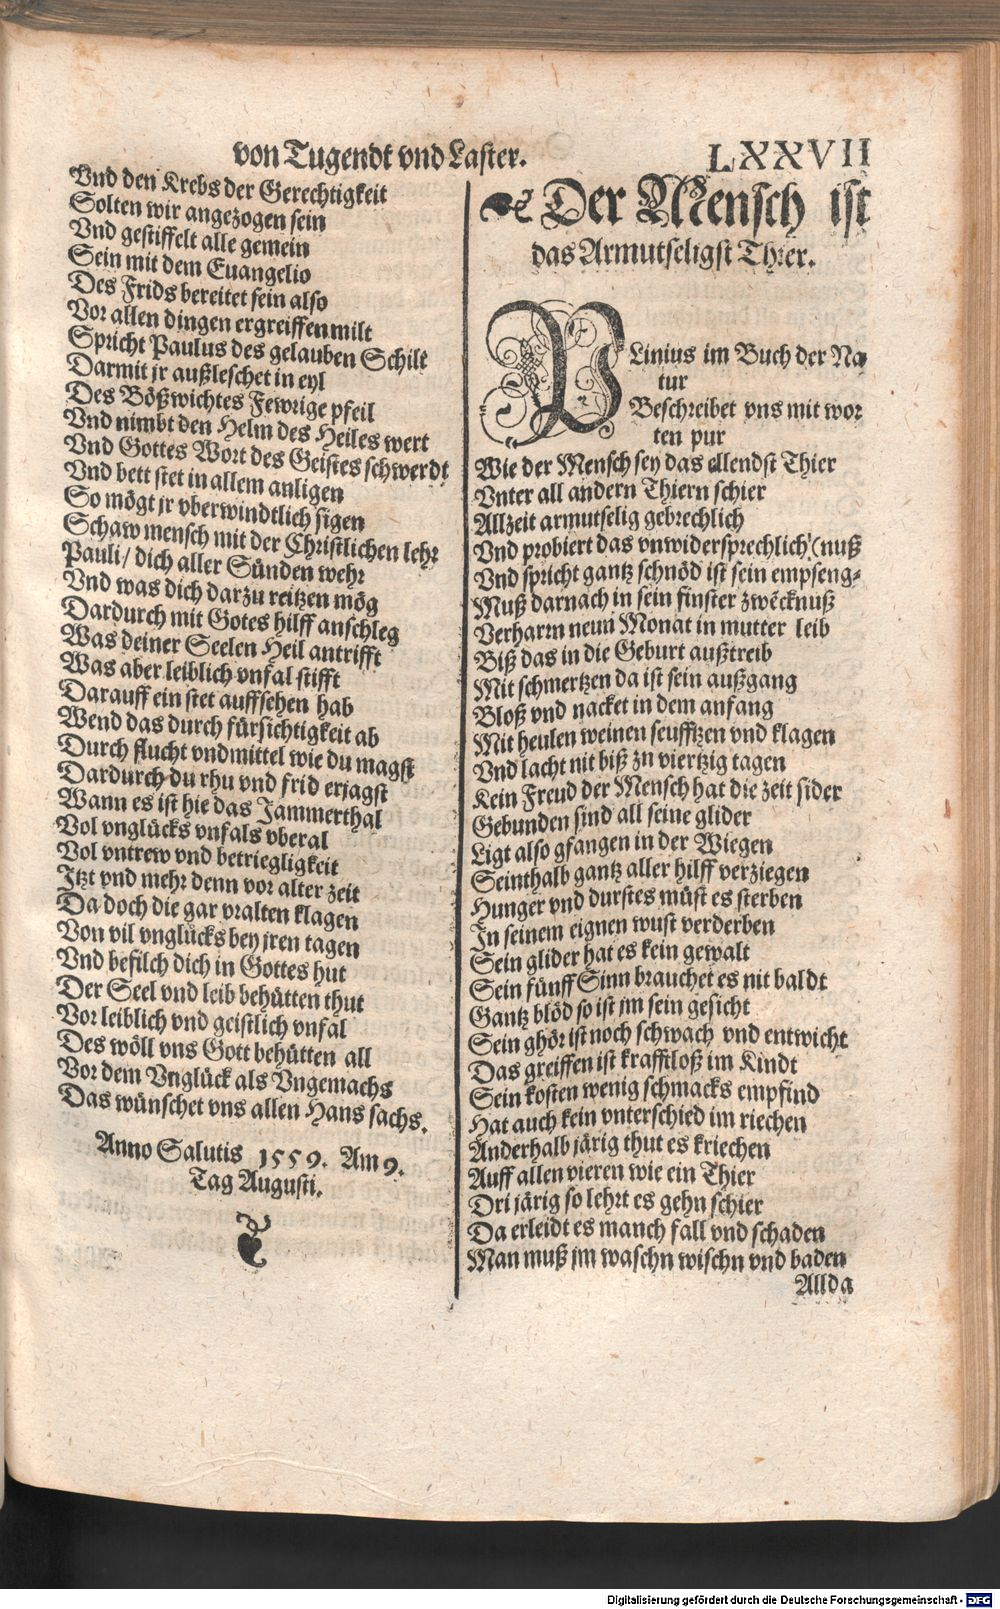 von Tugendt vnd Laster.
LXXVII
Vnd den Krebs der Gerechtigkeit
Solten wir angezogen sein
Vnd gestiffelt alle gemein
Sein mit dem Euangelio
Des Frids bereitet sein also
Vor allen dingen ergreiffen milt
Spricht Paulus des gelauben Schilt
Darmit jr außleschet in eyl
Des Bößwichtes Fewrige pfeil
Vnd nimbt den Helm des Heiles wert
Vnd Gottes Wort des Geistes schwerdt
Vnd bett stet in allem anligen
So mögt jr vberwindtlich sigen
Schaw mensch mit der Christlichen lehr
Pauli/ dich aller Sünden wehr
Vnd was dich darzu reitzen mög
Dardurch mit Gotes hilff anschleg
Was deiner Seelen Heil antrifft
Was aber leiblich vnfal stifft
Darauff ein stet auffsehen hab
Wend das durch fürsichtigkeit ab
Durch flucht vndmittel wie du magst
Dardurch du rhu vnd frid erjagst
Wann es ist hie das Jammerthal
Vol vnglücks vnfals vberal
Vol vntrew vnd betriegligkeit
Itzt vnd mehr denn vor alter zeit
Da doch die gar vralten klagen
Von vil vnglücks bey jren tagen
Vnd befilch dich in Gottes hut
Der Seel vnd leib behütten thut
Vor leiblich vnd geistlich vnfal
Des wöll vns Gott behütten all
Vor dem Vnglück als Vngemachs
Das wünschet vns allen Hans sachs.
Anno Salutis 1559. Am 9.
Tag Augusti.
Der Mensch ist
das Armutseligst Thier.
PLinius im Buch der Na
tur
Beschreibet vns mit wor
ten pur
Wie der Mensch sey das ellendst Thier
Vnter all andern Thiern schier
Allzeit armutselig gebrechlich
Vnd probiert das vnwidersprechlich (nuß
Vnd spricht gantz schnöd ist sein empfeng-
Muß darnach in sein finster zwẽcknuß
Verharrn neun Monat in mutter leib
Biß das in die Geburt außtreib
Mit schmertzen da ist sein außgang
Bloß vnd nacket in dem anfang
Mit heulen weinen seufftzen vnd klagen
Vnd lacht nit biß zu viertzig tagen
Kein Freud der Mensch hat die zeit sider
Gebunden sind all seine glider
Ligt also gfangen in der Wiegen
Seinthalb gantz aller hilff verziegen
Hunger vnd durstes müst es sterben
In seinem eignen wust verderben
Sein glider hat es kein gewalt
Sein fünff Sinn brauchet es nit baldt
Gantz blöd so ist jm sein gesicht
Sein ghör ist noch schwach vnd entwicht
Das greiffen ist krafftloß im Kindt
Sein kosten wenig schmacks empfind
Hat auch kein vnterschied im riechen
Anderhalb järig thut es kriechen
Auff allen vieren wie ein Thier
Dri järig so lehrt es gehn schier
Da erleidt es manch fall vnd schaden
Man muß jm waschn wischn vnd baden
Allda
Digitalisierung gefördert durch die Deutsche Forschungsgemeinschaft - DFG